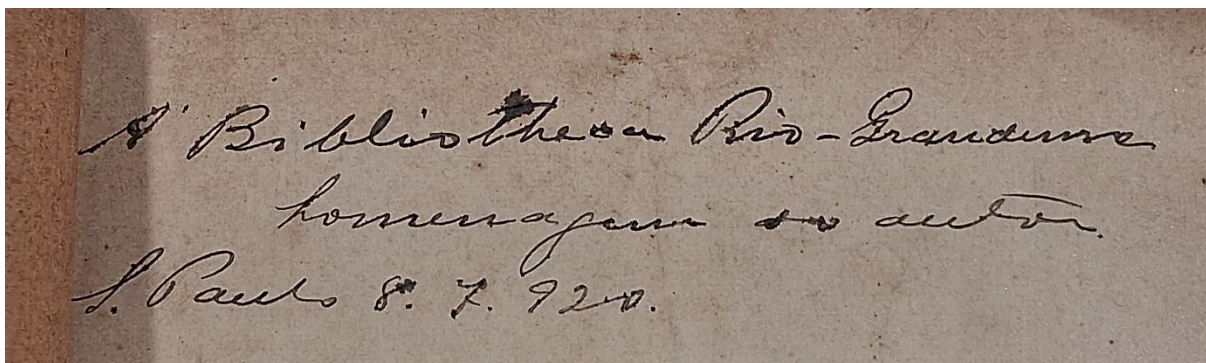 A' Bibliotheca Rio-Grandense
homenagem do autor.
S. Paulo 8. 7. 920.